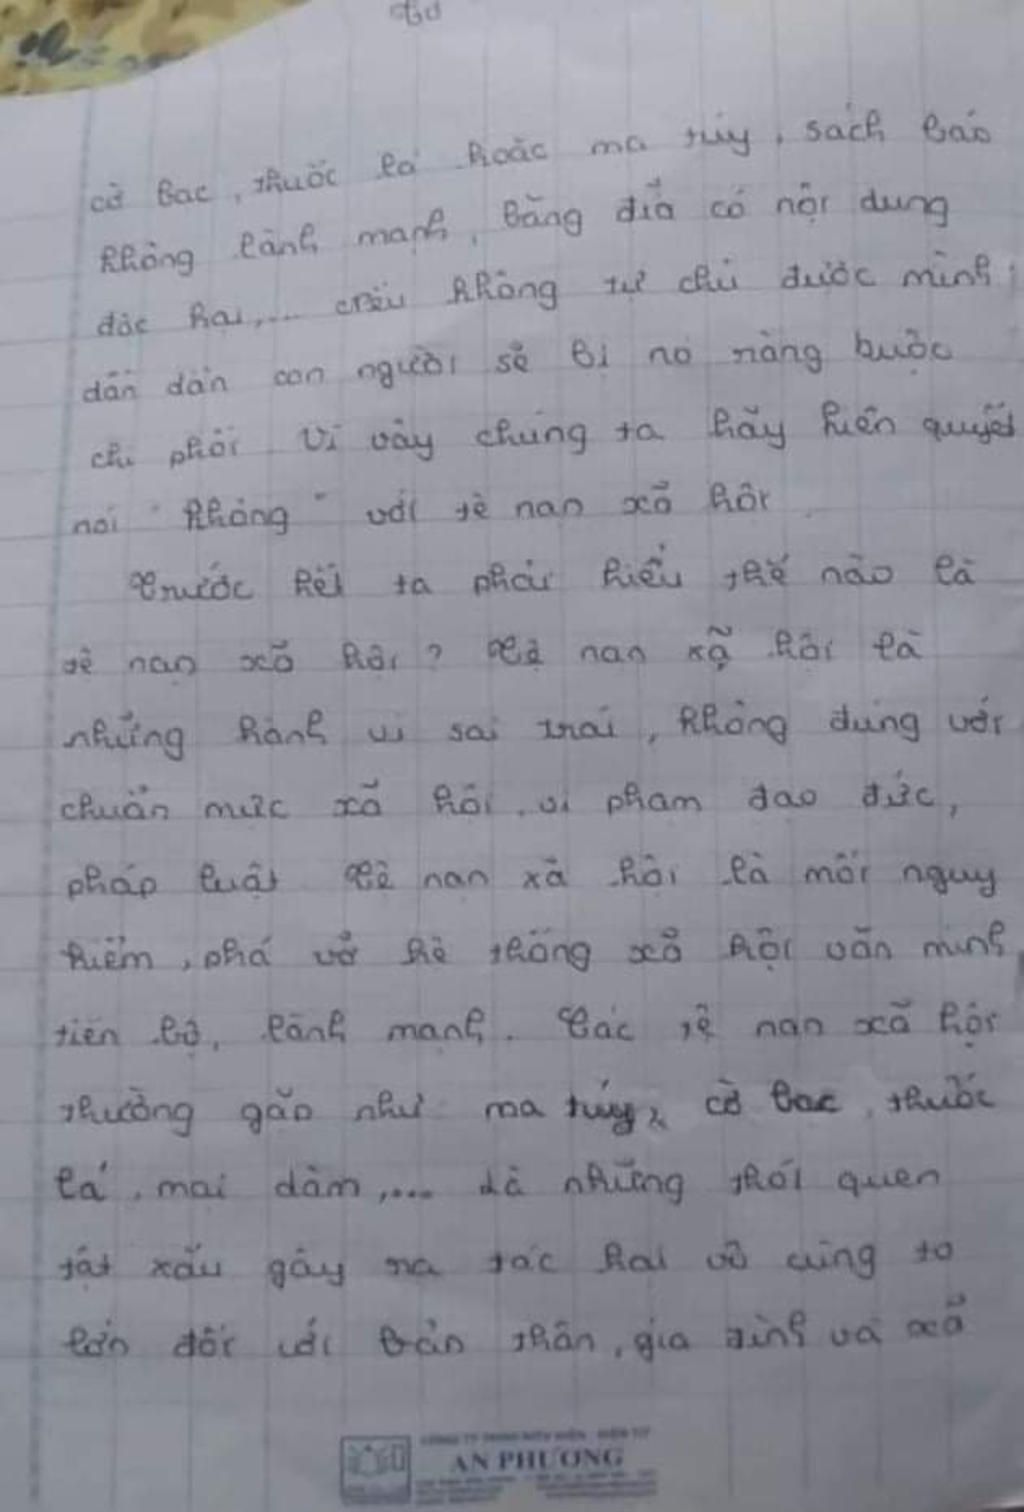 cờ bạc, thuốc lá hoặc ma túy, sách báo
không lành mạnh, băng đĩa có nội dung
độc hại,... nếu không tự chủ được mình
dần dần con người sẽ bị nó ràng buộc
chi phối. Vì vậy chúng ta hãy kiên quyết
nói "Không" với tệ nạn xã hội
Trước hết ta phải hiểu thế nào là
tệ nạn xã hội? Tệ nạn xã hội là
những hành vi sai trái, không đúng với
chuẩn mực xã hội, vi phạm đạo đức,
pháp luật Tệ nạn xã hội là mối nguy
hiểm, phá vỡ hệ thống xã hội văn minh
tiến bộ, lành mạnh. Các tệ nạn xã hội
thường gặp như ma túy, cờ bạc, thuốc
lá, mại dâm,... là những thói quen
tật xấu gây ra tác hại vô cùng to
lớn đối với bản thân, gia đình và xã
AN PHƯƠNG